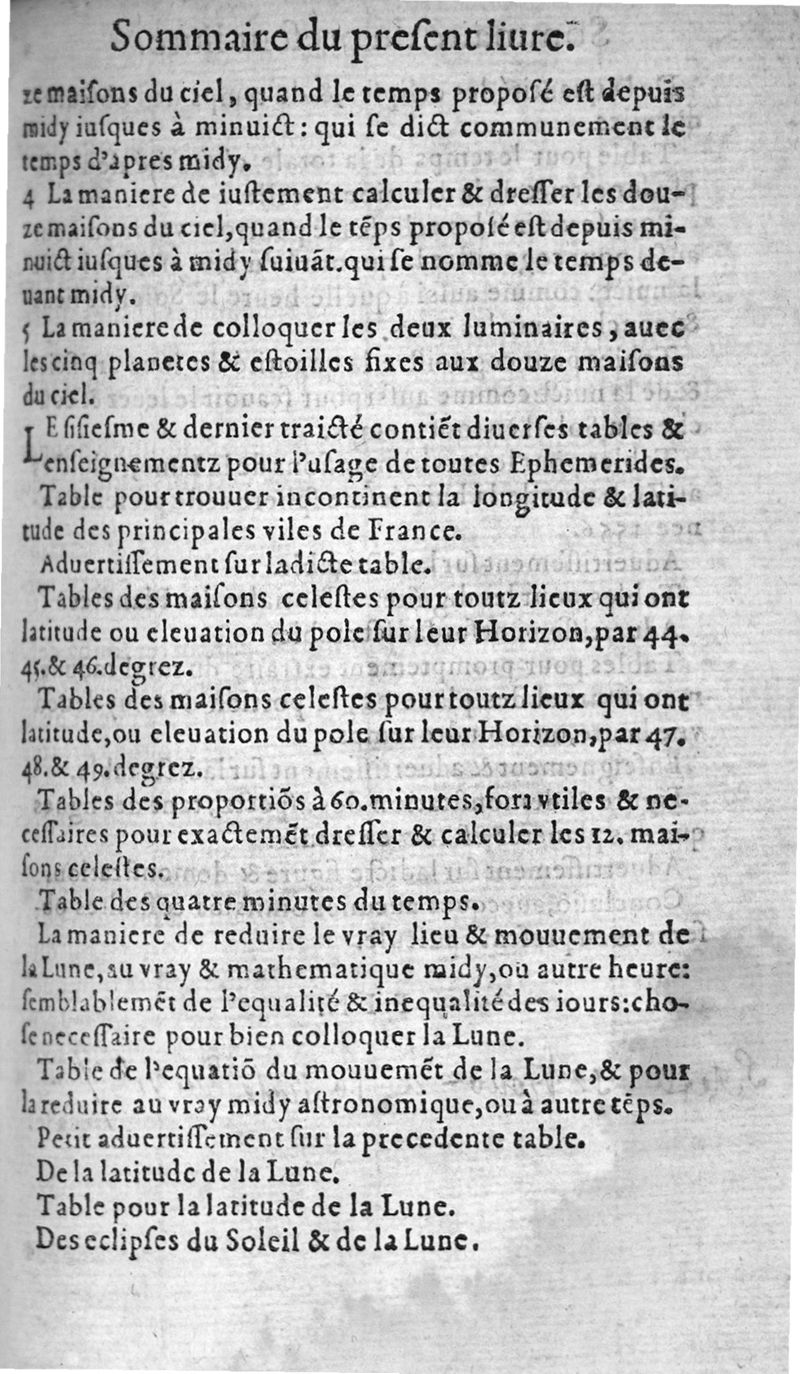 Sommaire du preſent liure.
ze maiſons du ciel, quand le temps propoſé eſt depuis
midy iuſques à minuict: qui ſe dict communement le
temps d'apres midy.
4 La maniere de iuſtement calculer & dreſſer les dou-
ze maiſons du ciel, quand le tẽps propoſé eſt depuis mi-
nuict iuſques à midy ſuiuãt. qui ſe nomme le temps de-
uant midy.
5 La maniere de colloquer les deux luminaires, auec
les cinq planetes & eſtoilles fixes aux douze maiſons
du ciel.
LE ſiſieſme & dernier traicté contiẽt diuerſes tables &
enſeignementz pour l'uſage de toutes Ephemerides.
Table pour trouuer incontinent la longitude & lati-
tude des principales viles de France.
Aduertiſſement ſur ladicte table.
Tables des maiſons celeſtes pour toutz lieux qui ont
latitude ou eleuation du pole ſur leur Horizon, par 44.
45. & 46. degrez.
Tables des maiſons celeſtes pour toutz lieux qui ont
latitude, ou eleuation du pole ſur leur Horizon, par 47.
48. & 49. degrez.
Tables des proportiõs à 60. minutes, fort vtiles & ne-
ceſſaires pour exactemẽt dreſſer & calculer les 12. mai-
ſons celeſtes.
Table des quatre minutes du temps.
La maniere de reduire le vray lieu & mouuement de
la Lune, au vray & mathematique midy, ou autre heure:
ſemblablemẽt de l'equalité & inequalité des iours: cho-
ſe neceſſaire pour bien colloquer la Lune.
Table de l'equatiõ du mouuemẽt de la Lune, & pour
la reduire au vray midy aſtronomique, ou à autre tẽps.
Petit aduertiſſement ſur la precedente table.
De la latitude de la Lune.
Table pour la latitude de la Lune.
Des eclipſes du Soleil & de la Lune.